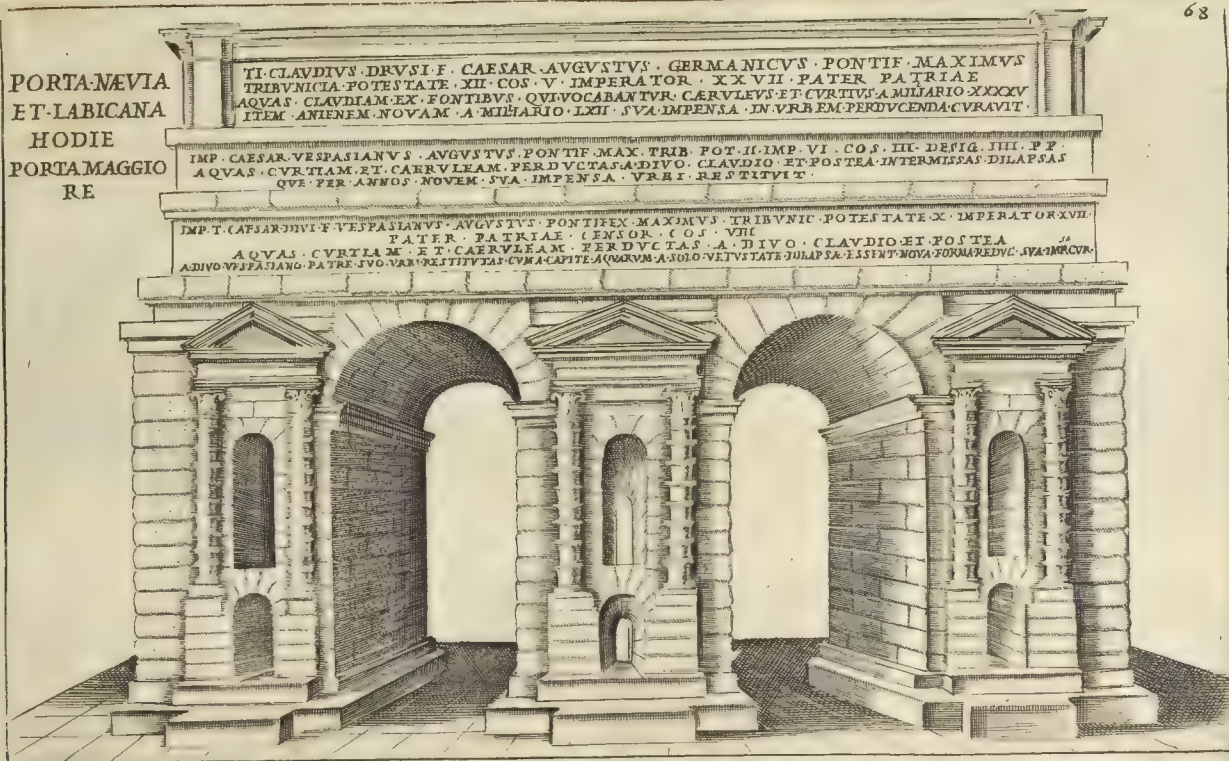 68
PORTA·NÆVIA
ET·LABICANA
HODIE
PORTA MAGGIO
RE
TI·CLAVDIVS·DRVSI·F·CAESAR·AVGVSTVS·GERMANICVS·PONTIF·MAXIMVS
TRIBVNICIA·POTESTATE·XII·COS·V·IMPERATOR·XXVII·PATER PATRIAE
AQVAS·CLAVDIAM·EX·FONTIBVS·QVI·VOCABANTVR·CÆRVLEVS·ET·CVRTIVS·A·MILIARIO·XXXXV
ITEM·ANIENEM·NOVAM·A·MILIARIO·LXII·SVA·IMPENSA·IN·VRBEM·PERDVCENDA·CVRAVIT·
IMP·CAESAR·VESPASIANVS·AVGVSTVS·PONTIF·MAX·TRIB·POT·II·IMP·VI·COS·III·DESIG·IIII·P·P·
AQVAS·CVRTIAM·ET·CAERVLEAM·PERDVCTAS·A·DIVO·CLAVDIO·ET·POSTEA·INTERMISSAS·DILAPSAS
QVE·PER·ANNOS·NOVEM·SVA·IMPENSA·VRBI·RESTITVIT·
IMP·T·CAESAR·DIVI·F·VESPASIANVS·AVGVSTVS·PONTIFEX·MAXIMVS·TRIBVNIC·POTESTATE·X·IMPERATOR·XVII·
PATER·PATRIAE·CENSOR·COS·VIII
AQVAS·CVRTIAM·ET·CAERVLEAM·PERDVCTAS·A·DIVO·CLAVDIO·ET·POSTEA
A·DIVO·VESPASIANO·PATRE·SVO·VRBI·RESTITVTAS·CVM·A·CAPITE·AQVARVM·A·SOLO·VETVSTATE·DILAPSÆ·ESSENT·NOVA·FORMA·REDVC·SVA·IMP·CVR·